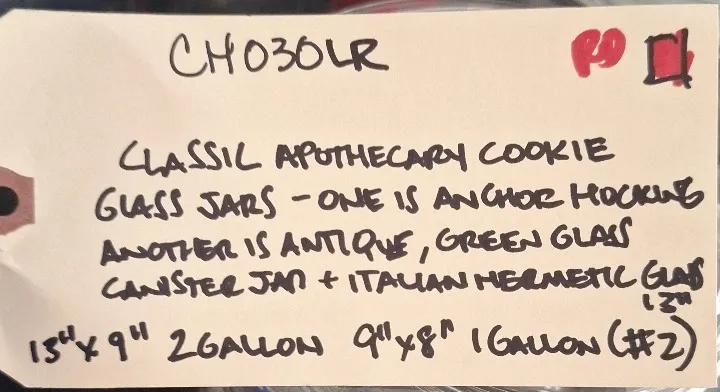 CH030LR RD
CLASSIC APOTHECARY COOKIE
GLASS JARS - ONE IS ANCHOR HOCKING
ANOTHER IS ANTIQUE, GREEN GLASS
CANISTER JAR + ITALIAN HERMETIC GLASS
13"
13" x 9" 2 GALLON 9" x 8" 1 GALLON (#2)